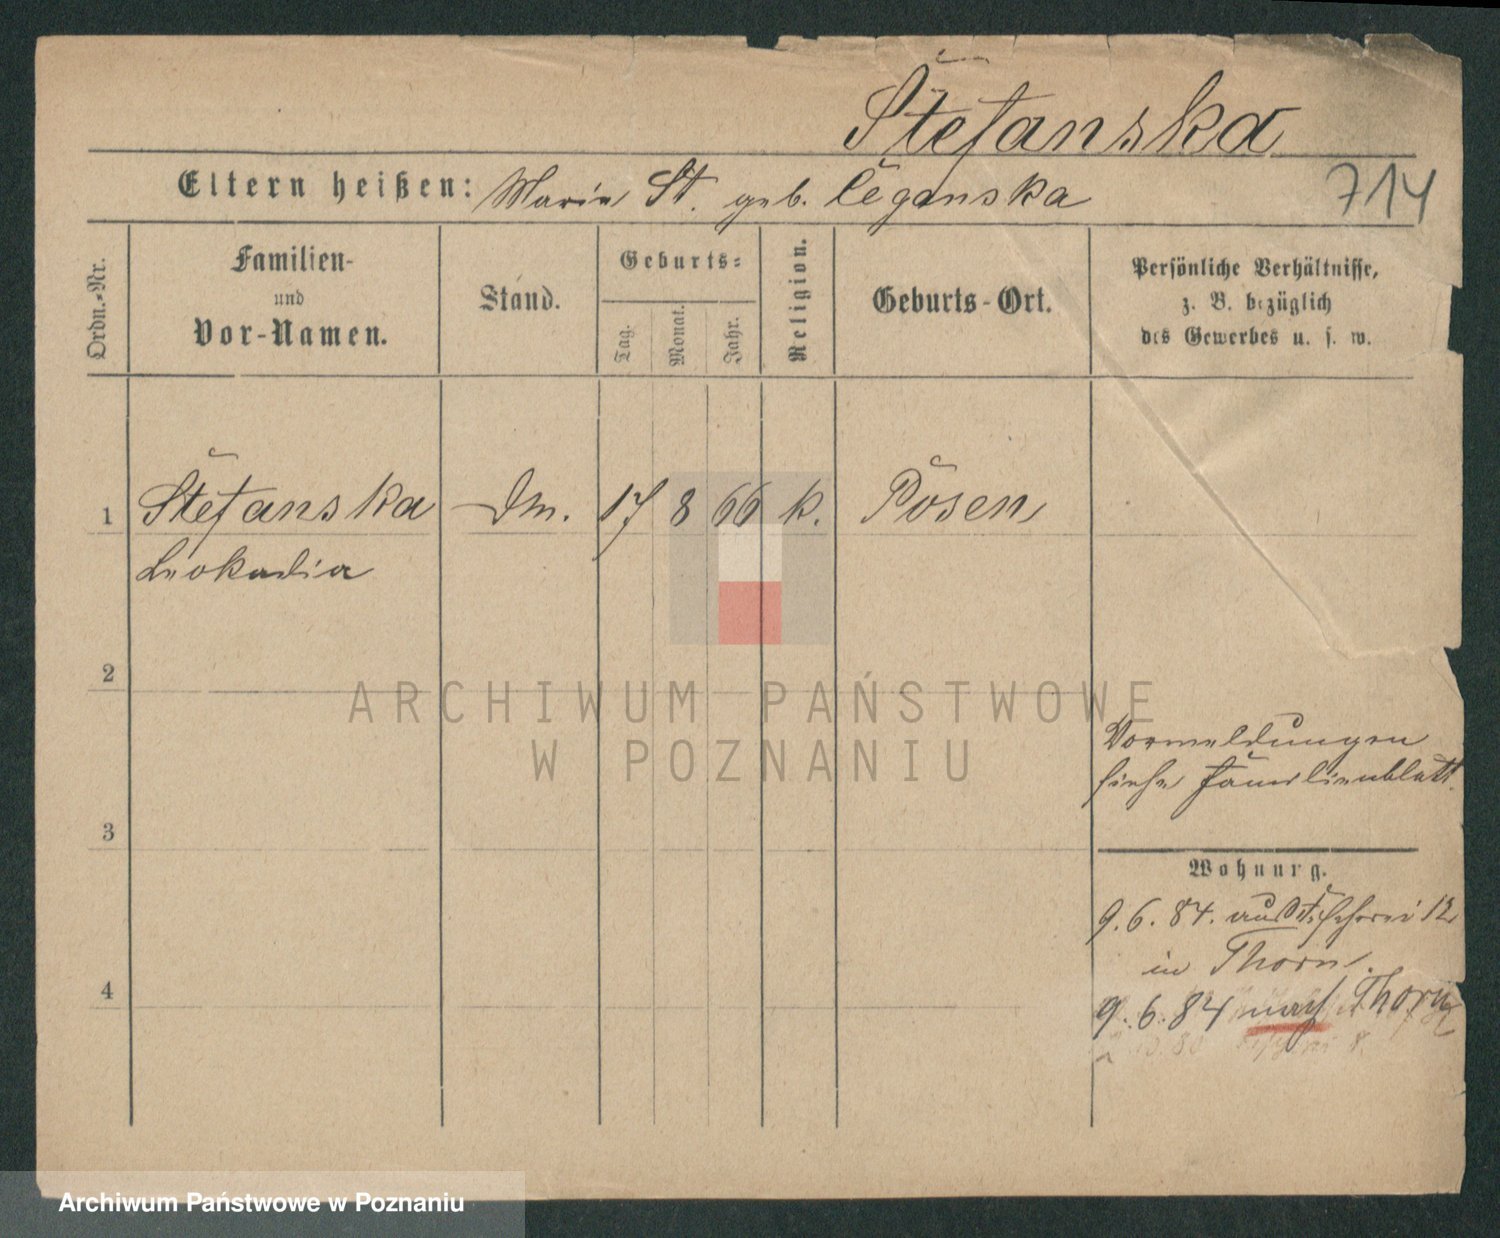 Stefanska
Eltern heißen: Marie St. geb. Ceganska
714
Ordn.-Nr.
Familien-
und
Vor-Namen.
Stand.
Geburts-
Tag.
Monat.
Jahr.
Religion.
Geburts-Ort.
Persönliche Verhältnisse,
z. B. bezüglich
des Gewerbes u. s. w.
1 Stefanska Dm. 17 8 66 k. Posen
Leokadia
2
ARCHIWUM PAŃSTWOWE
W POZNANIU
Vormeldungen
siehe Familienblatt.
3
Wohnung.
9.6.84. aus Fischerei 12
in Thorn.
4
9.6.84 nach Thorn
Archiwum Państwowe w Poznaniu